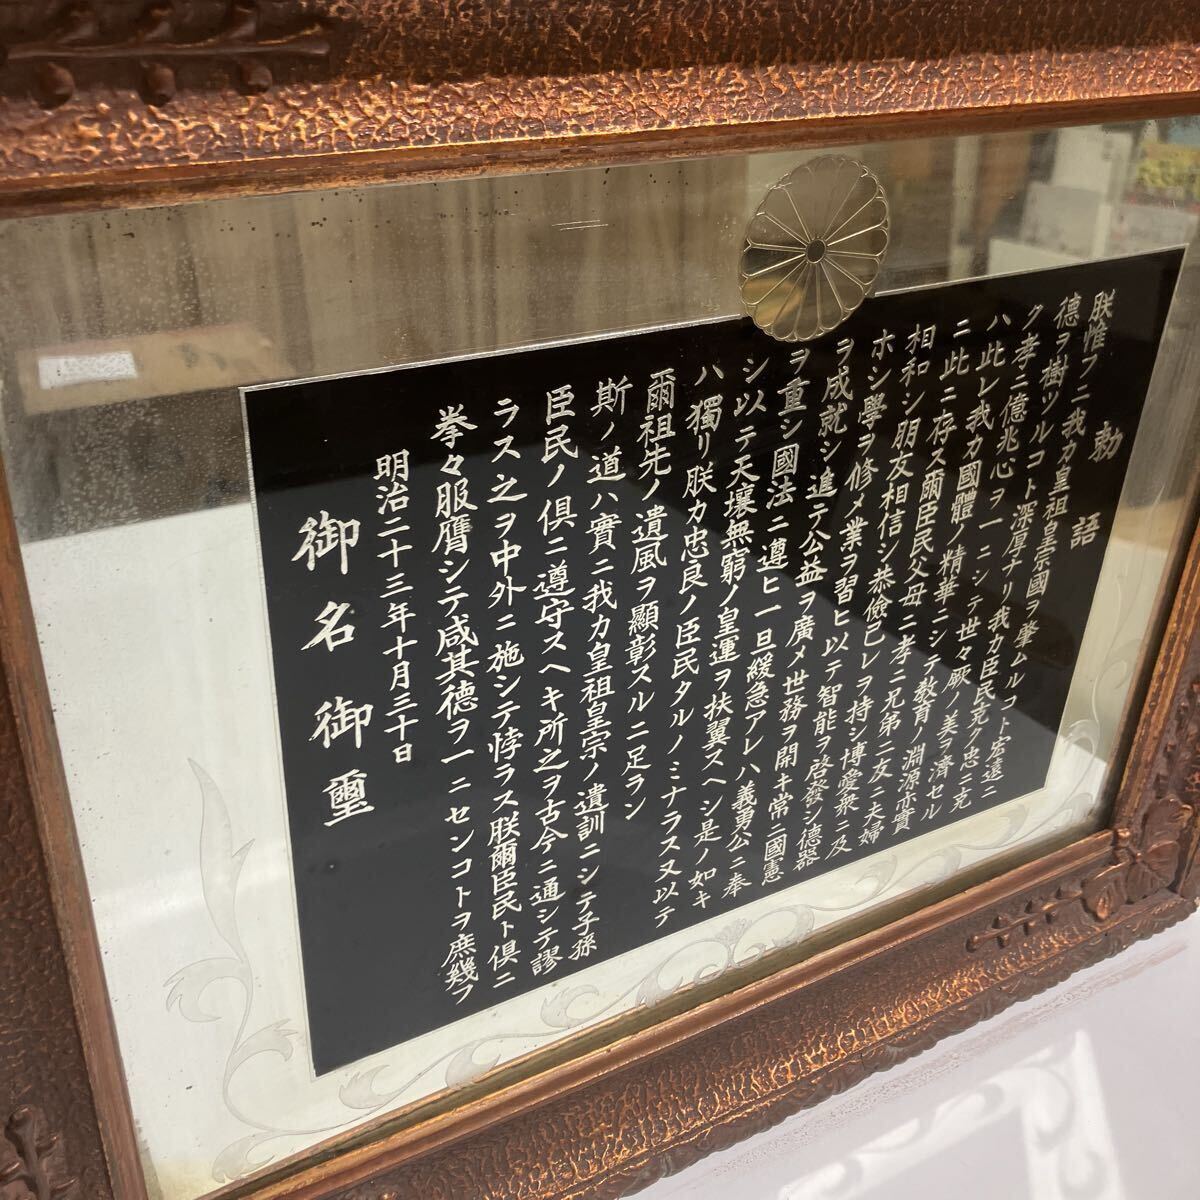 勅語
朕惟フニ我カ皇祖皇宗國ヲ肇ムルコト宏遠ニ
德ヲ樹ツルコト深厚ナリ我カ臣民克ク忠ニ克
ク孝ニ億兆心ヲ一ニシテ世々厥ノ美ヲ濟セル
ハ此レ我カ國體ノ精華ニシテ教育ノ淵源亦實
ニ此ニ存ス爾臣民父母ニ孝ニ兄弟ニ友ニ夫婦
相和シ朋友相信シ恭儉己レヲ持シ博愛衆ニ及
ホシ學ヲ修メ業ヲ習ヒ以テ智能ヲ啓發シ德器
ヲ成就シ進テ公益ヲ廣メ世務ヲ開キ常ニ國憲
ヲ重シ國法ニ遵ヒ一旦緩急アレハ義勇公ニ奉
シ以テ天壤無窮ノ皇運ヲ扶翼スヘシ是ノ如キ
ハ獨リ朕カ忠良ノ臣民タルノミナラス又以テ
爾祖先ノ遺風ヲ顯彰スルニ足ラン
斯ノ道ハ實ニ我カ皇祖皇宗ノ遺訓ニシテ子孫
臣民ノ倶ニ遵守スヘキ所之ヲ古今ニ通シテ謬
ラス之ヲ中外ニ施シテ悖ラス朕爾臣民ト倶ニ
拳々服膺シテ咸其德ヲ一ニセンコトヲ庶幾フ
明治二十三年十月三十日
御名御璽